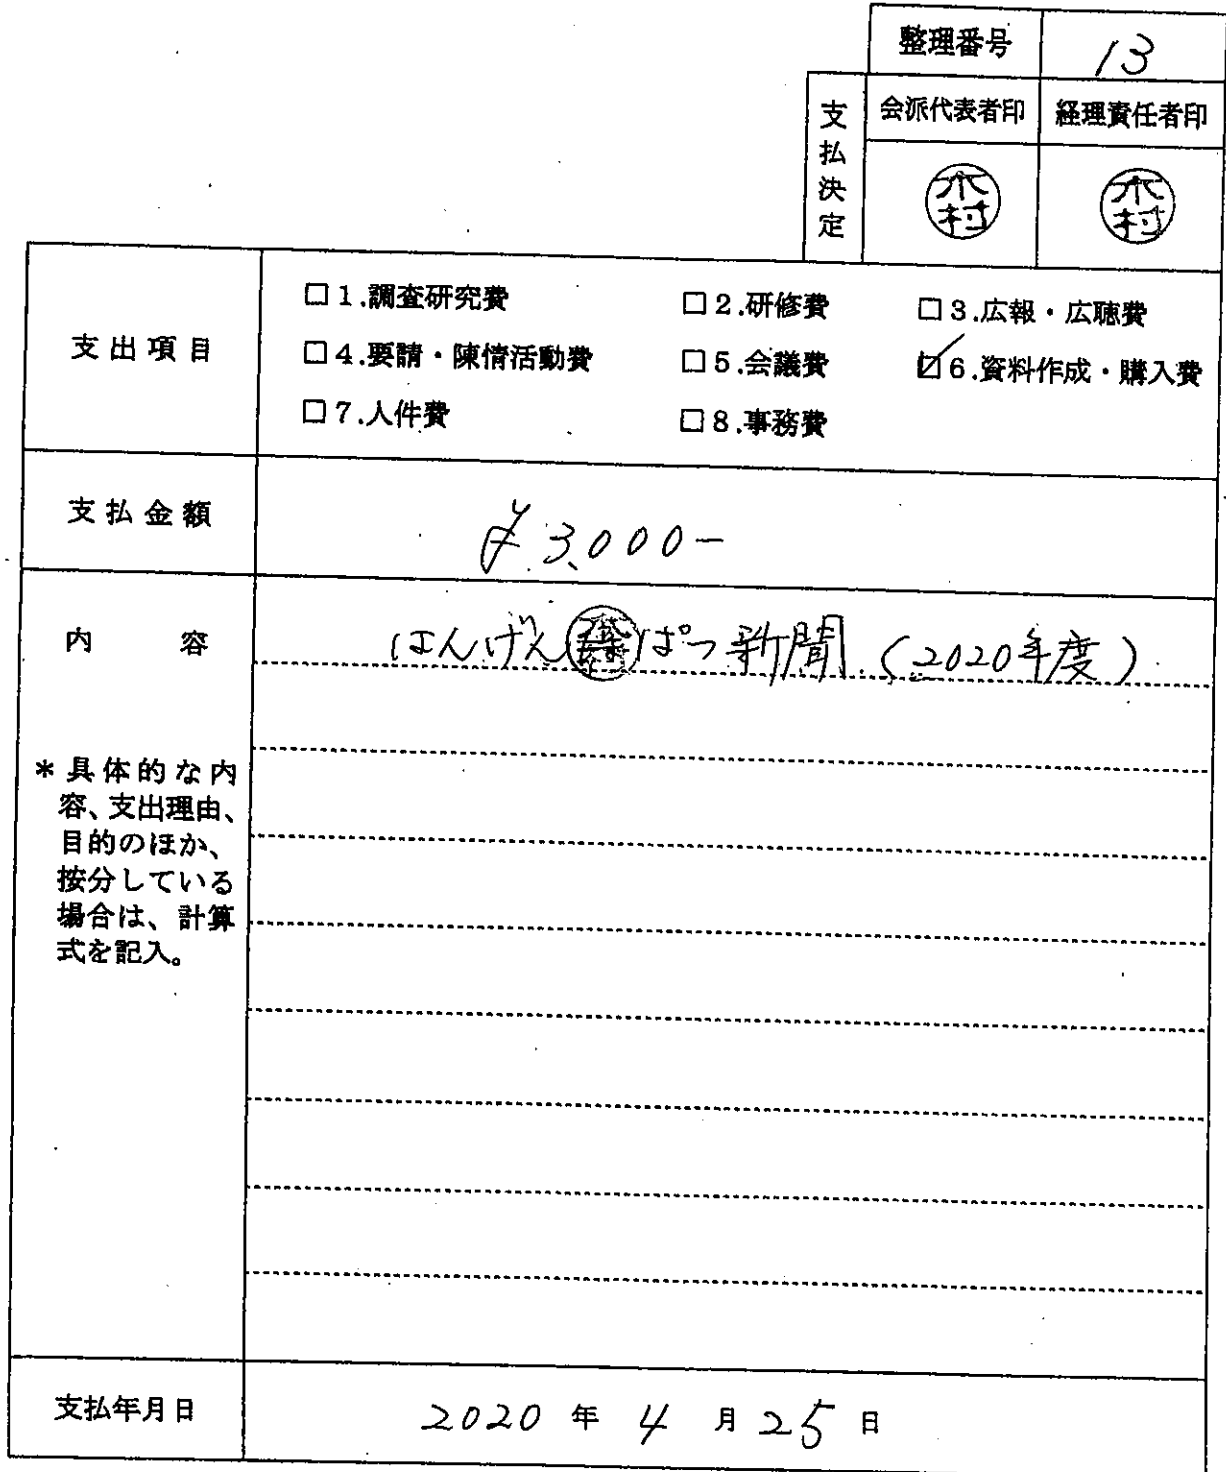 整理番号 13
支払決定
会派代表者印 経理責任者印
木村 木村
支出項目
□1.調査研究費 □2.研修費 □3.広報・広聴費
□4.要請・陳情活動費 □5.会議費 ☑6.資料作成・購入費
□7.人件費 □8.事務費
支払金額 ¥3,000-
内容 はんげんぱつ新聞(2020年度)
*具体的な内
容、支出理由、
目的のほか、
按分している
場合は、計算
式を記入。
支払年月日 2020年4月25日